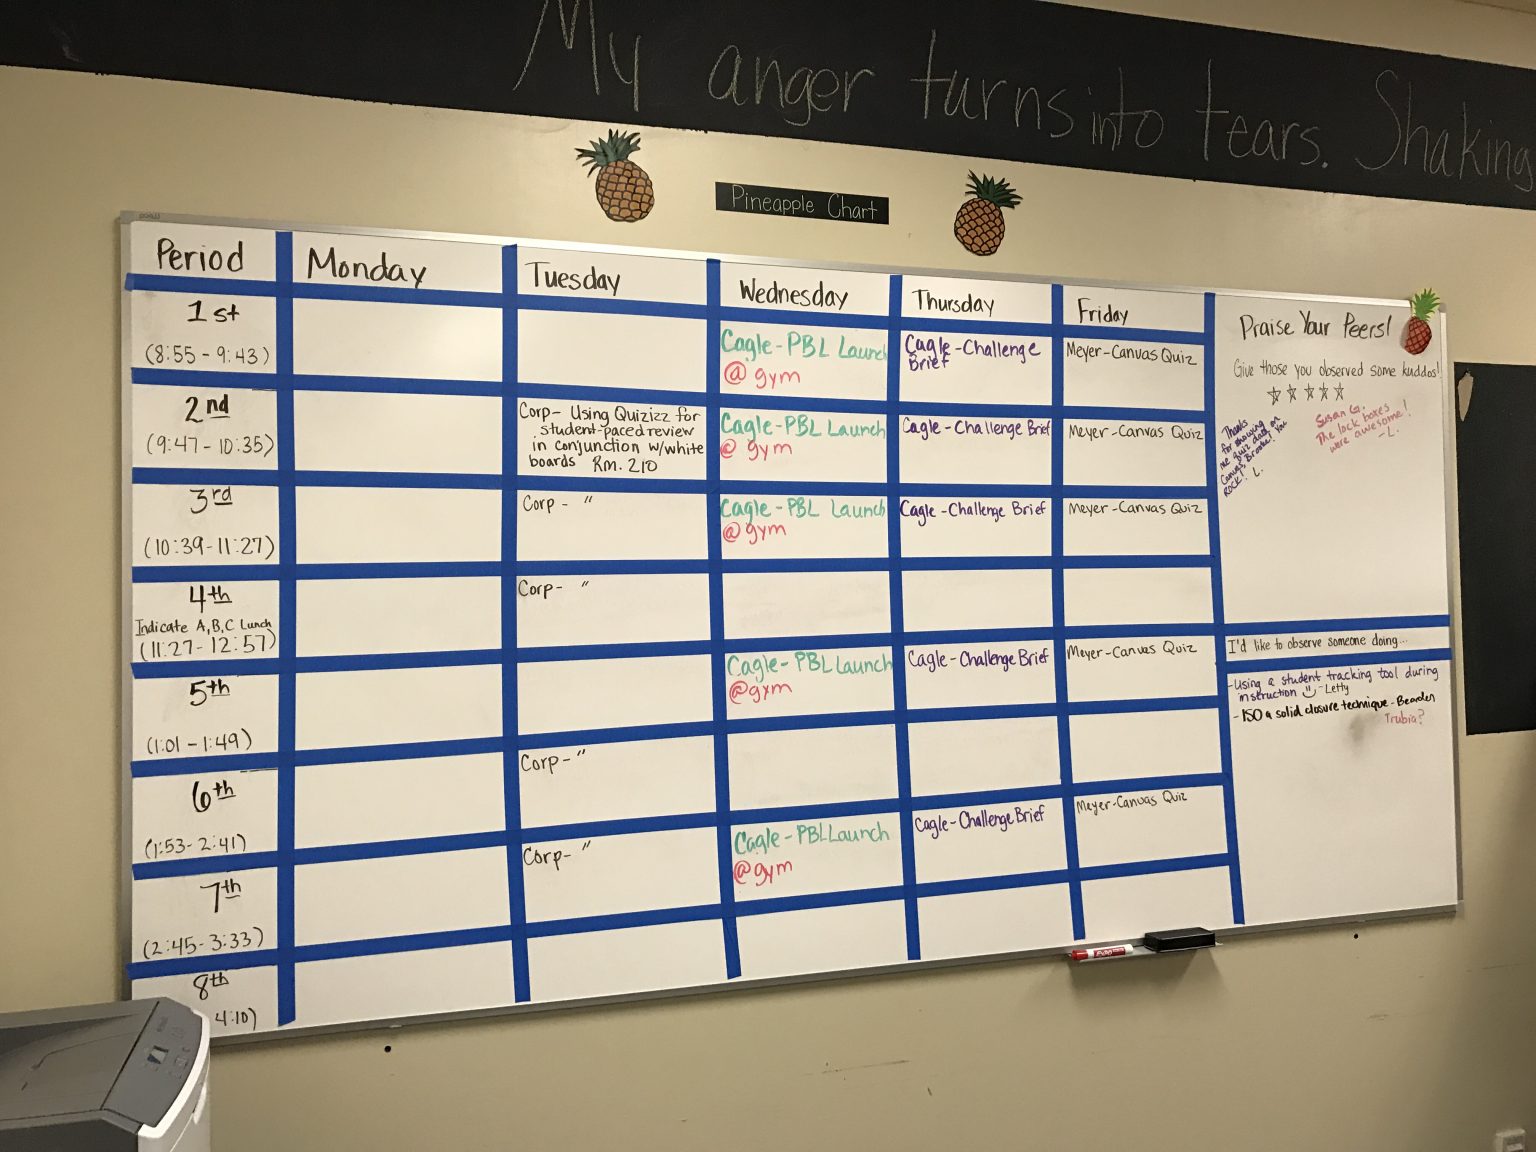 My anger turns into tears. Shaking
Pineapple Chart
Period
Monday
Tuesday
Wednesday
Thursday
Friday
1st
(8:55 - 9:43)
Cagle-PBL Launch
@ gym
Cagle-Challenge
Brief
Meyer-Canvas Quiz
2nd
(9:47-10:35)
Corp- Using Quizizz for
student-paced review
in conjunction w/white
boards Rm. 210
Cagle-PBL Launch
@ gym
Cagle-Challenge Brief
Meyer-Canvas Quiz
3rd
(10:39-11:27)
Corp - "
Cagle-PBL Launch
@gym
Cagle-Challenge Brief
Meyer-Canvas Quiz
4th
Indicate A,B,C Lunch
(11:27-12:57)
Corp- "
5th
(1:01-1:49)
Cagle-PBL Launch
@gym
Cagle-Challenge Brief
Meyer-Canvas Quiz
6th
(1:53-2:41)
Corp-"
7th
(2:45-3:33)
Corp- "
Cagle-PBL Launch
@gym
Cagle-Challenge Brief
Meyer-Canvas Quiz
8th
4:10)
Praise Your Peers!
Give those you observed some kuddos!
Thanks
for showing
me quiz data on
Canvas, Brooke! You
ROCK! L.
Susan G.
The lock boxes
were awesome!
-L.
I'd like to observe someone doing...
-Using a student tracking tool during
instruction -Letty
-ISO a solid closure technique-Bearden
Trubia?